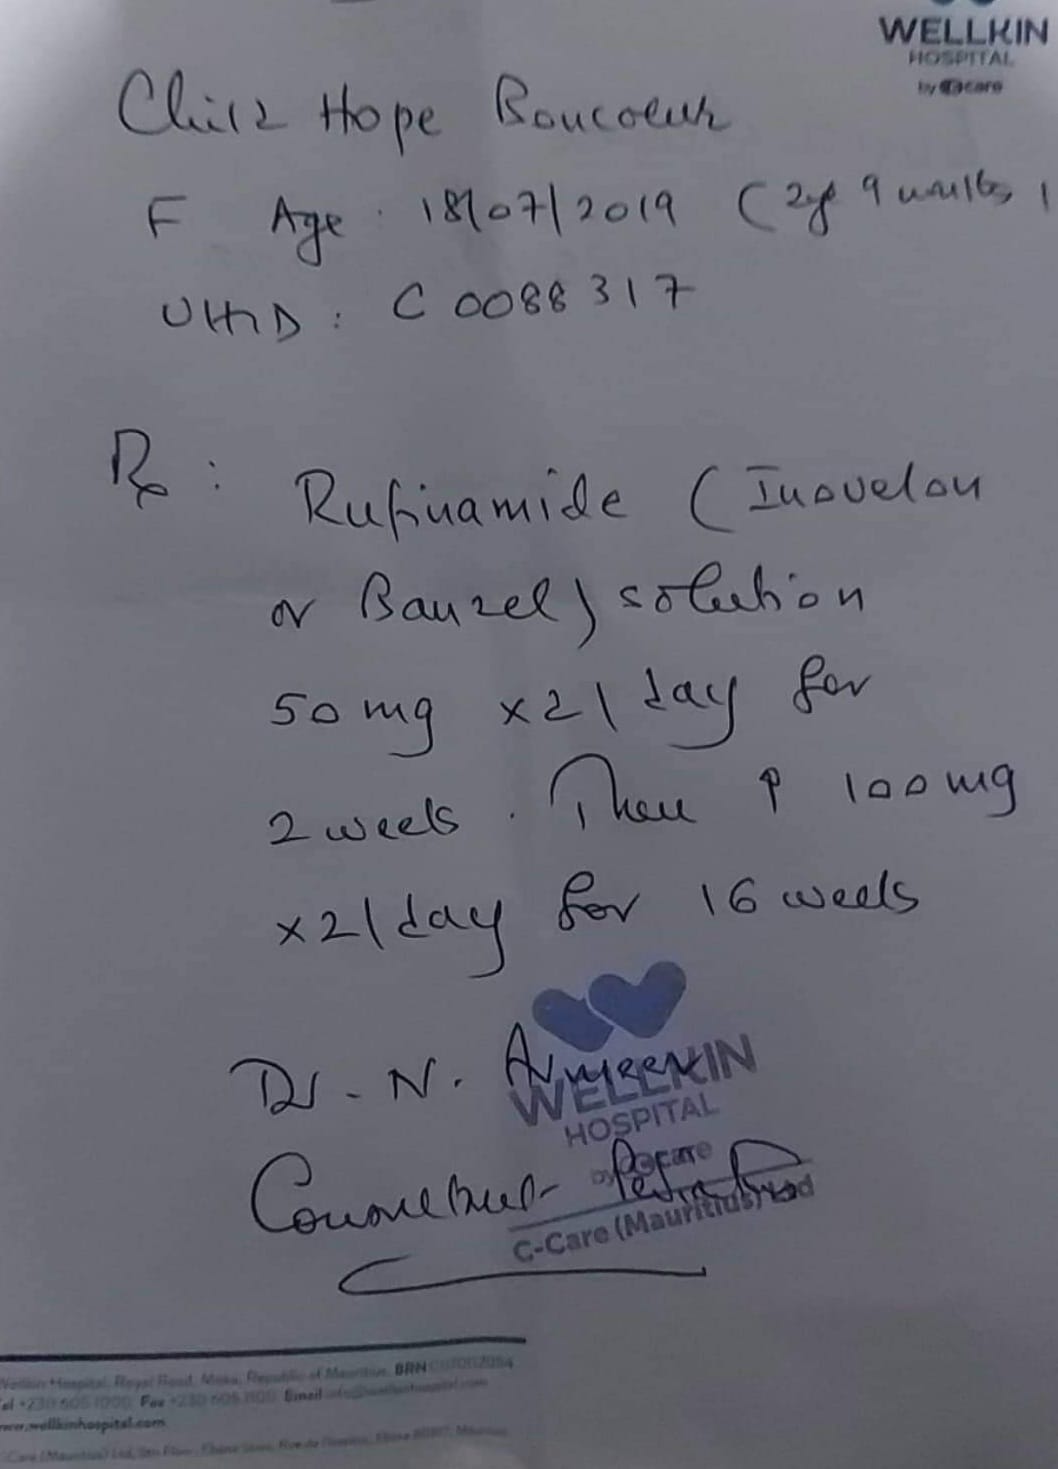 WELLKIN
HOSPITAL
by C-care
Child Hope Boucoeur
F Age : 18/07/2019 (2y 9 months)
UHID : C 0088317
Rx : Rufinamide (Inovelon
or Banzel) solution
50 mg x2/day for
2 weeks . Then ↑ 100 mg
x2/day for 16 weeks
Dr. N.
WELLKIN
HOSPITAL
by C-care
Consultant
C-Care (Mauritius) Ltd
Wellkin Hospital, Royal Road, Moka, Republic of Mauritius, BRN
Tel +230 605 1000 Fax +230 605 1100 Email info@wellkinhospital.com
www.wellkinhospital.com
C-Care (Mauritius) Ltd,